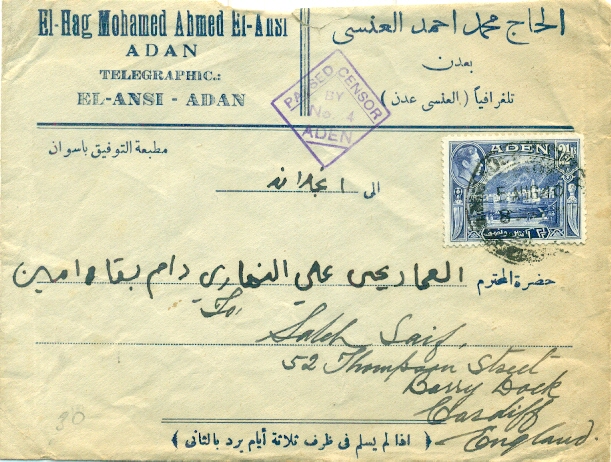 El-Hag Mohamed Ahmed El-Ansi
ADAN
TELEGRAPHIC.:
EL-ANSI - ADAN
الحاج محمد احمد العنسي
بعدن
تلغرافياً (العنسى عدن)
PASSED CENSOR
BY
No. 4
ADEN
مطبعة التوفيق باسوان
ADEN
الى انجلاند
حضرة المحترم العماد يحيى علي الذماري دام بقاه امين
To,
Saleh Saif,
52 Thompson Street
Barry Dock
Cardiff
England.
30
﴿ اذا لم يسلم فى ظرف ثلاثة أيام يرد بالثانى ﴾